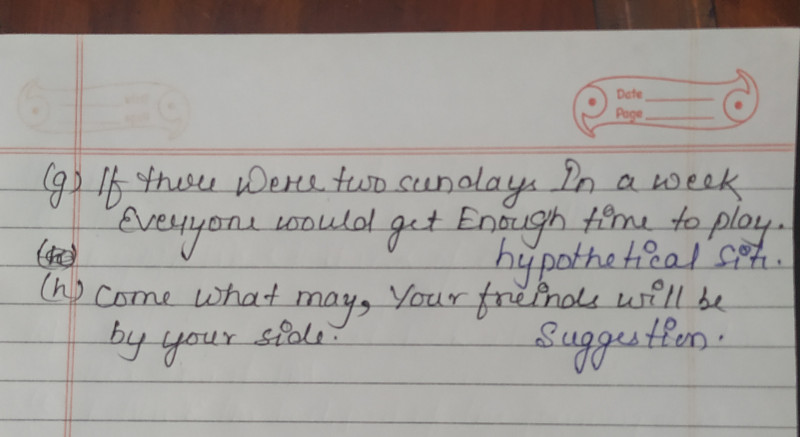 Date
Page
(g) If there were two sundays In a week
Everyone would get Enough time to play.
hypothetical sit.
(h) Come what may, Your freinds will be
by your side.
Suggestion.